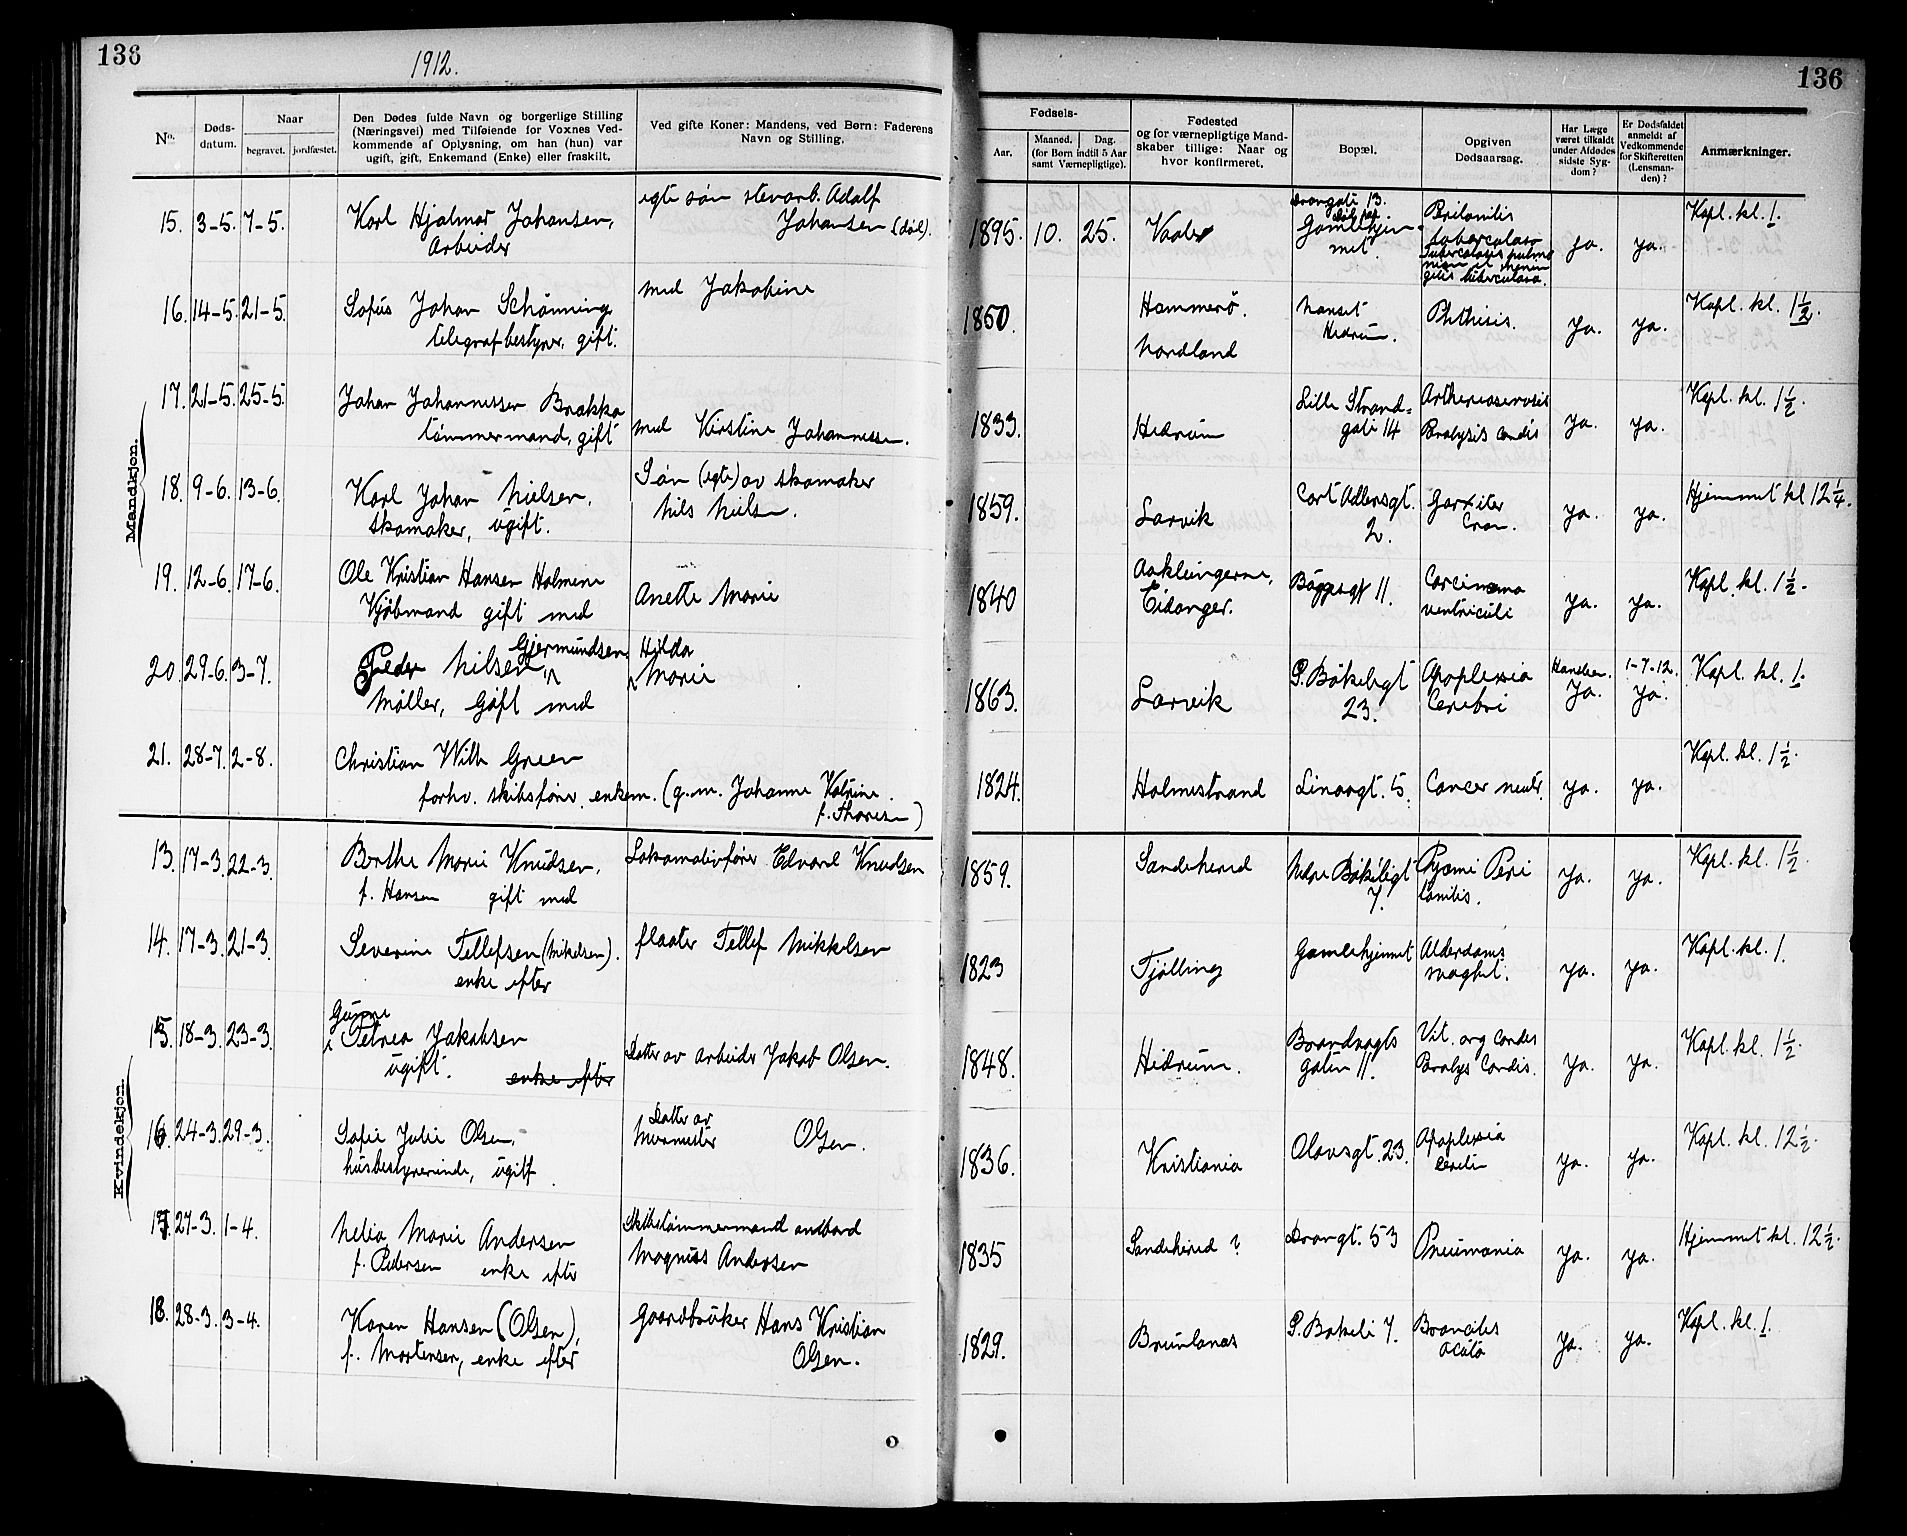 136
1912.
136
No.
Døds-
datum.
Naar
begravet.
jordfæstet.
Den Dødes fulde Navn og borgerlige Stilling
(Næringsvei) med Tilføiende for Voxnes Ved-
kommende af Oplysning, om han (hun) var
ugift, gift, Enkemand (Enke) eller fraskilt.
Ved gifte Koner: Mandens, ved Børn: Faderens
Navn og Stilling.
Fødsels-
Aar.
Maaned.
Dag.
(for Børn indtil 5 Aar
samt Værnepligtige).
Fødested
og for værnepligtige Mand-
skaber tillige: Naar og
hvor konfirmeret.
Bopæl.
Opgiven
Dødsaarsag.
Har Læge
været tilkaldt
under Afdødes
sidste Syg-
dom?
Er Dødsfaldet
anmeldt af
Vedkommende
for Skifteretten
(Lensman-
den)?
Anmærkninger.
Mandkjøn.
15. 3-5. 7-5. Karl Hjalmar Johansen,
Arbeider
egte søn stenarb. Adolf
Johansen (död).
1895. 10. 25. Vaale
Gamlehjem-
met.
Peritonitis
tuberculosa
Ja. Ja. Kapl. kl. 1.
16. 14-5. 21-5. Sofus Johan Schönning
telegrafbestyrer, gift.
med Jakobine
1850. Hammerö.
Nordland
Nanset
Hedrum.
Phthisis. Ja. Ja. Kapl. kl. 1½.
17. 21-5. 25-5. Johan Johannessen Brekka
tömmermand, gift
med Kirstine Johannessen.
1833. Hedrum
Lille Strand-
gate 14
Paralysis Cordis
Ja. Ja. Kapl. kl. 1½.
18. 9-6. 13-6. Karl Johan Nielsen.
skomaker, ugift.
Søn (egte) av skomaker
Nils Nielsen.
1859. Larvik
Cort Adlersgt.
2.
Ja. Ja. Hjemmet kl 12¼.
19. 12-6. 17-6. Ole Kristian Hansen Holmene
Kjöbmand gift med
Anette Marie
1840
Eidanger.
11.
Carcinoma
ventriculi
Ja. Ja. Kapl. kl. 1½.
20 29-6. 3-7. Peder Nilsen Gjermundsen
Møller, Gift med
Hilda
Marie
1863. Larvik
S. Bökeligt
23.
Apoplexia
Cerebri
Ja.
1-7-12.
Ja.
Kapl. kl. 1.
21. 28-7. 2-8. Christian Wilh Green
forhv. skibsfører. enkem. (g.m. Johanne Katrine
f. Thoresen)
1824. Holmestrand Linaagt. 5. Cancer ventr. Ja. Ja. Kapl. kl. 1½.
Kvindekjøn.
13. 17-3. 22-3. Berthe Marie Knudsen.
f. Hansen gift med
Lokomotivfører Edvard Knudsen
1859. Sandeherred
Nedre Bökeligt
7.
Pyæmi Peri
tonitis.
Ja. Ja. Kapl. kl. 1½.
14. 17-3. 21-3. Severine Tellefsen (Mikelsen).
enke efter
flaater Tellef Mikkelsen
1823 Tjølling Gamlehjemmet
Alderdoms
svaghet.
Ja. Ja. Kapl. kl. 1.
15. 18-3. 23-3.
Petrea Jakobsen
ugift. enke efter
Datter av arbeider Jakob Olsen.
1848. Hedrum.
Brandvagts
gaten 11.
Vit. org Cordis
Paralys Cordis.
Ja. Ja. Kapl. kl. 1½.
16. 24-3. 29-3. Sofie Julie Olsen,
husbestyrerinde, ugift
Datter av
Murmester Olsen.
1836. Kristiania Olavsgt. 23.
Apoplexia
Cerebri
Ja. Ja. Kapl. kl. 12½.
17. 27-3. 1-4. Nelia Marie Andersen
f. Pedersen enke efter
Skibstømmermand ombord
Magnus Andersen
1835 Sandeherred ? Drangt. 53 Pneumonia Ja. Ja. Hjemmet kl. 12½.
18. 28-3. 3-4. Karen Hansen (Olsen),
f. Mortensen, enke efter
Gaardbruker Hans Kristian
Olsen.
1829. Brunlanæs S. Bökeli 7.
Bronchitis
acuta
Ja. Ja. Kapl. kl. 1.